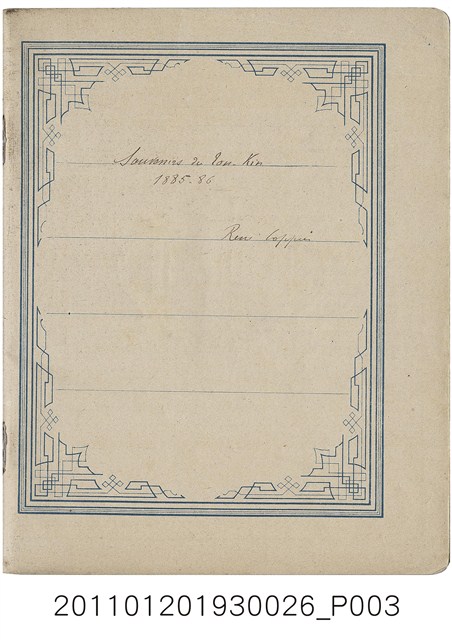 Souvenirs du Ton-Kin
1885-86
René Coppin
201101201930026_P003